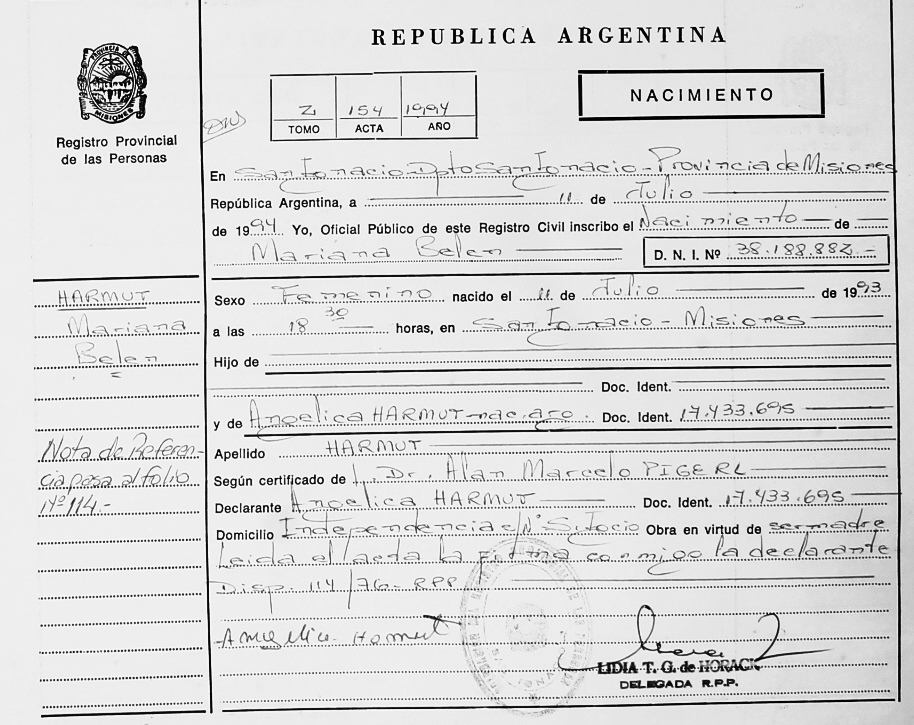 REPUBLICA ARGENTINA
PROVINCIA DE MISIONES
Registro Provincial
de las Personas
2 154 1994
TOMO ACTA AÑO
NACIMIENTO
En San Ignacio-Dpto San Ignacio-Provincia de Misiones
República Argentina, a 11 de Julio
de 1994 Yo, Oficial Público de este Registro Civil inscribo el Nacimiento de
Mariana Belen D. N. I. Nº 38.188.882.-
HARMUT
Mariana
Belen
Sexo Femenino nacido el 11 de Julio de 1993
a las 18 30 horas, en San Ignacio-Misiones
Hijo de
Doc. Ident.
y de Angelica HARMUT-nac.arg. Doc. Ident. 17.433.695
Apellido HARMUT
Nota de Referen-
cia pasa al folio
Nº 114.-
Según certificado de Dr. Alan Marcelo PIGERL
Declarante Angelica HARMUT Doc. Ident. 17.433.695
Domicilio Independencia s/Nº Obra en virtud de ser madre
Leida el acta la firma conmigo la declarante
Disp. 114/76-RPP
Angelica Harmut
LIDIA T. G. de HORACK
DELEGADA R.P.P.